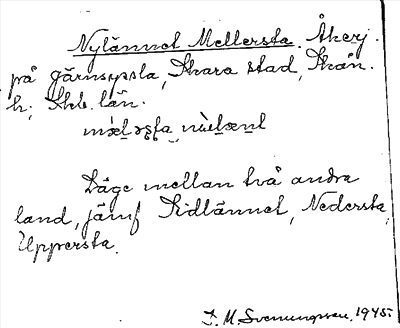 Nylännet Mellersta. Åkerj.
på Järnsyssla, Skara stad, Skån.
h., Skb. län.
Läge mellan två andra
land, jämf Kidlännet, Nedersta,
Uppersta.
I. M. Svenungsson, 1945.